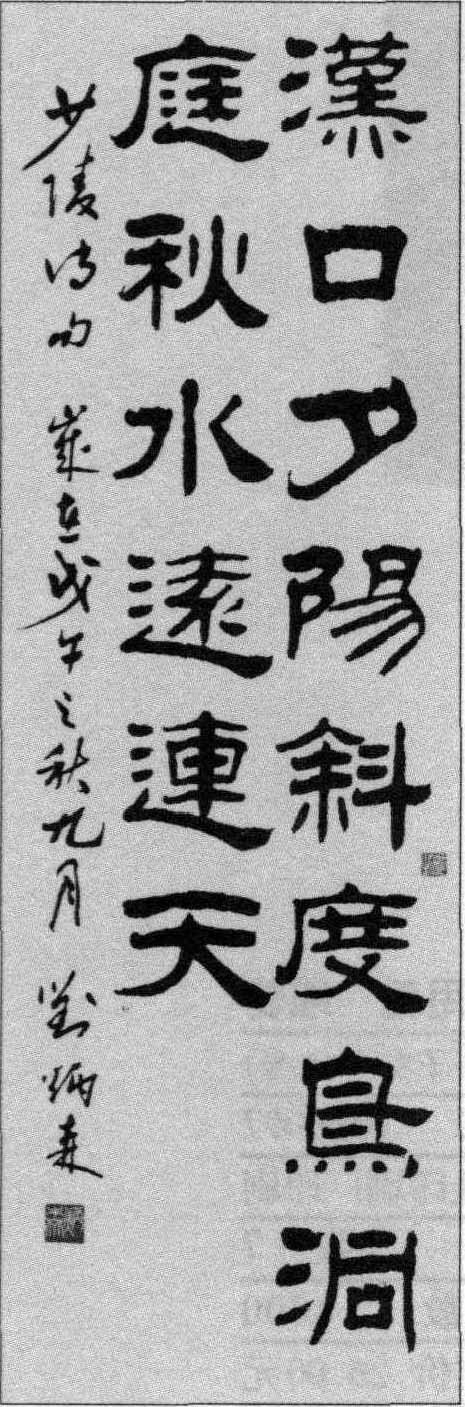 漢口夕陽斜度鳥洞
庭秋水遠連天
少陵詩句 歲在戊午之秋九月 劉炳森